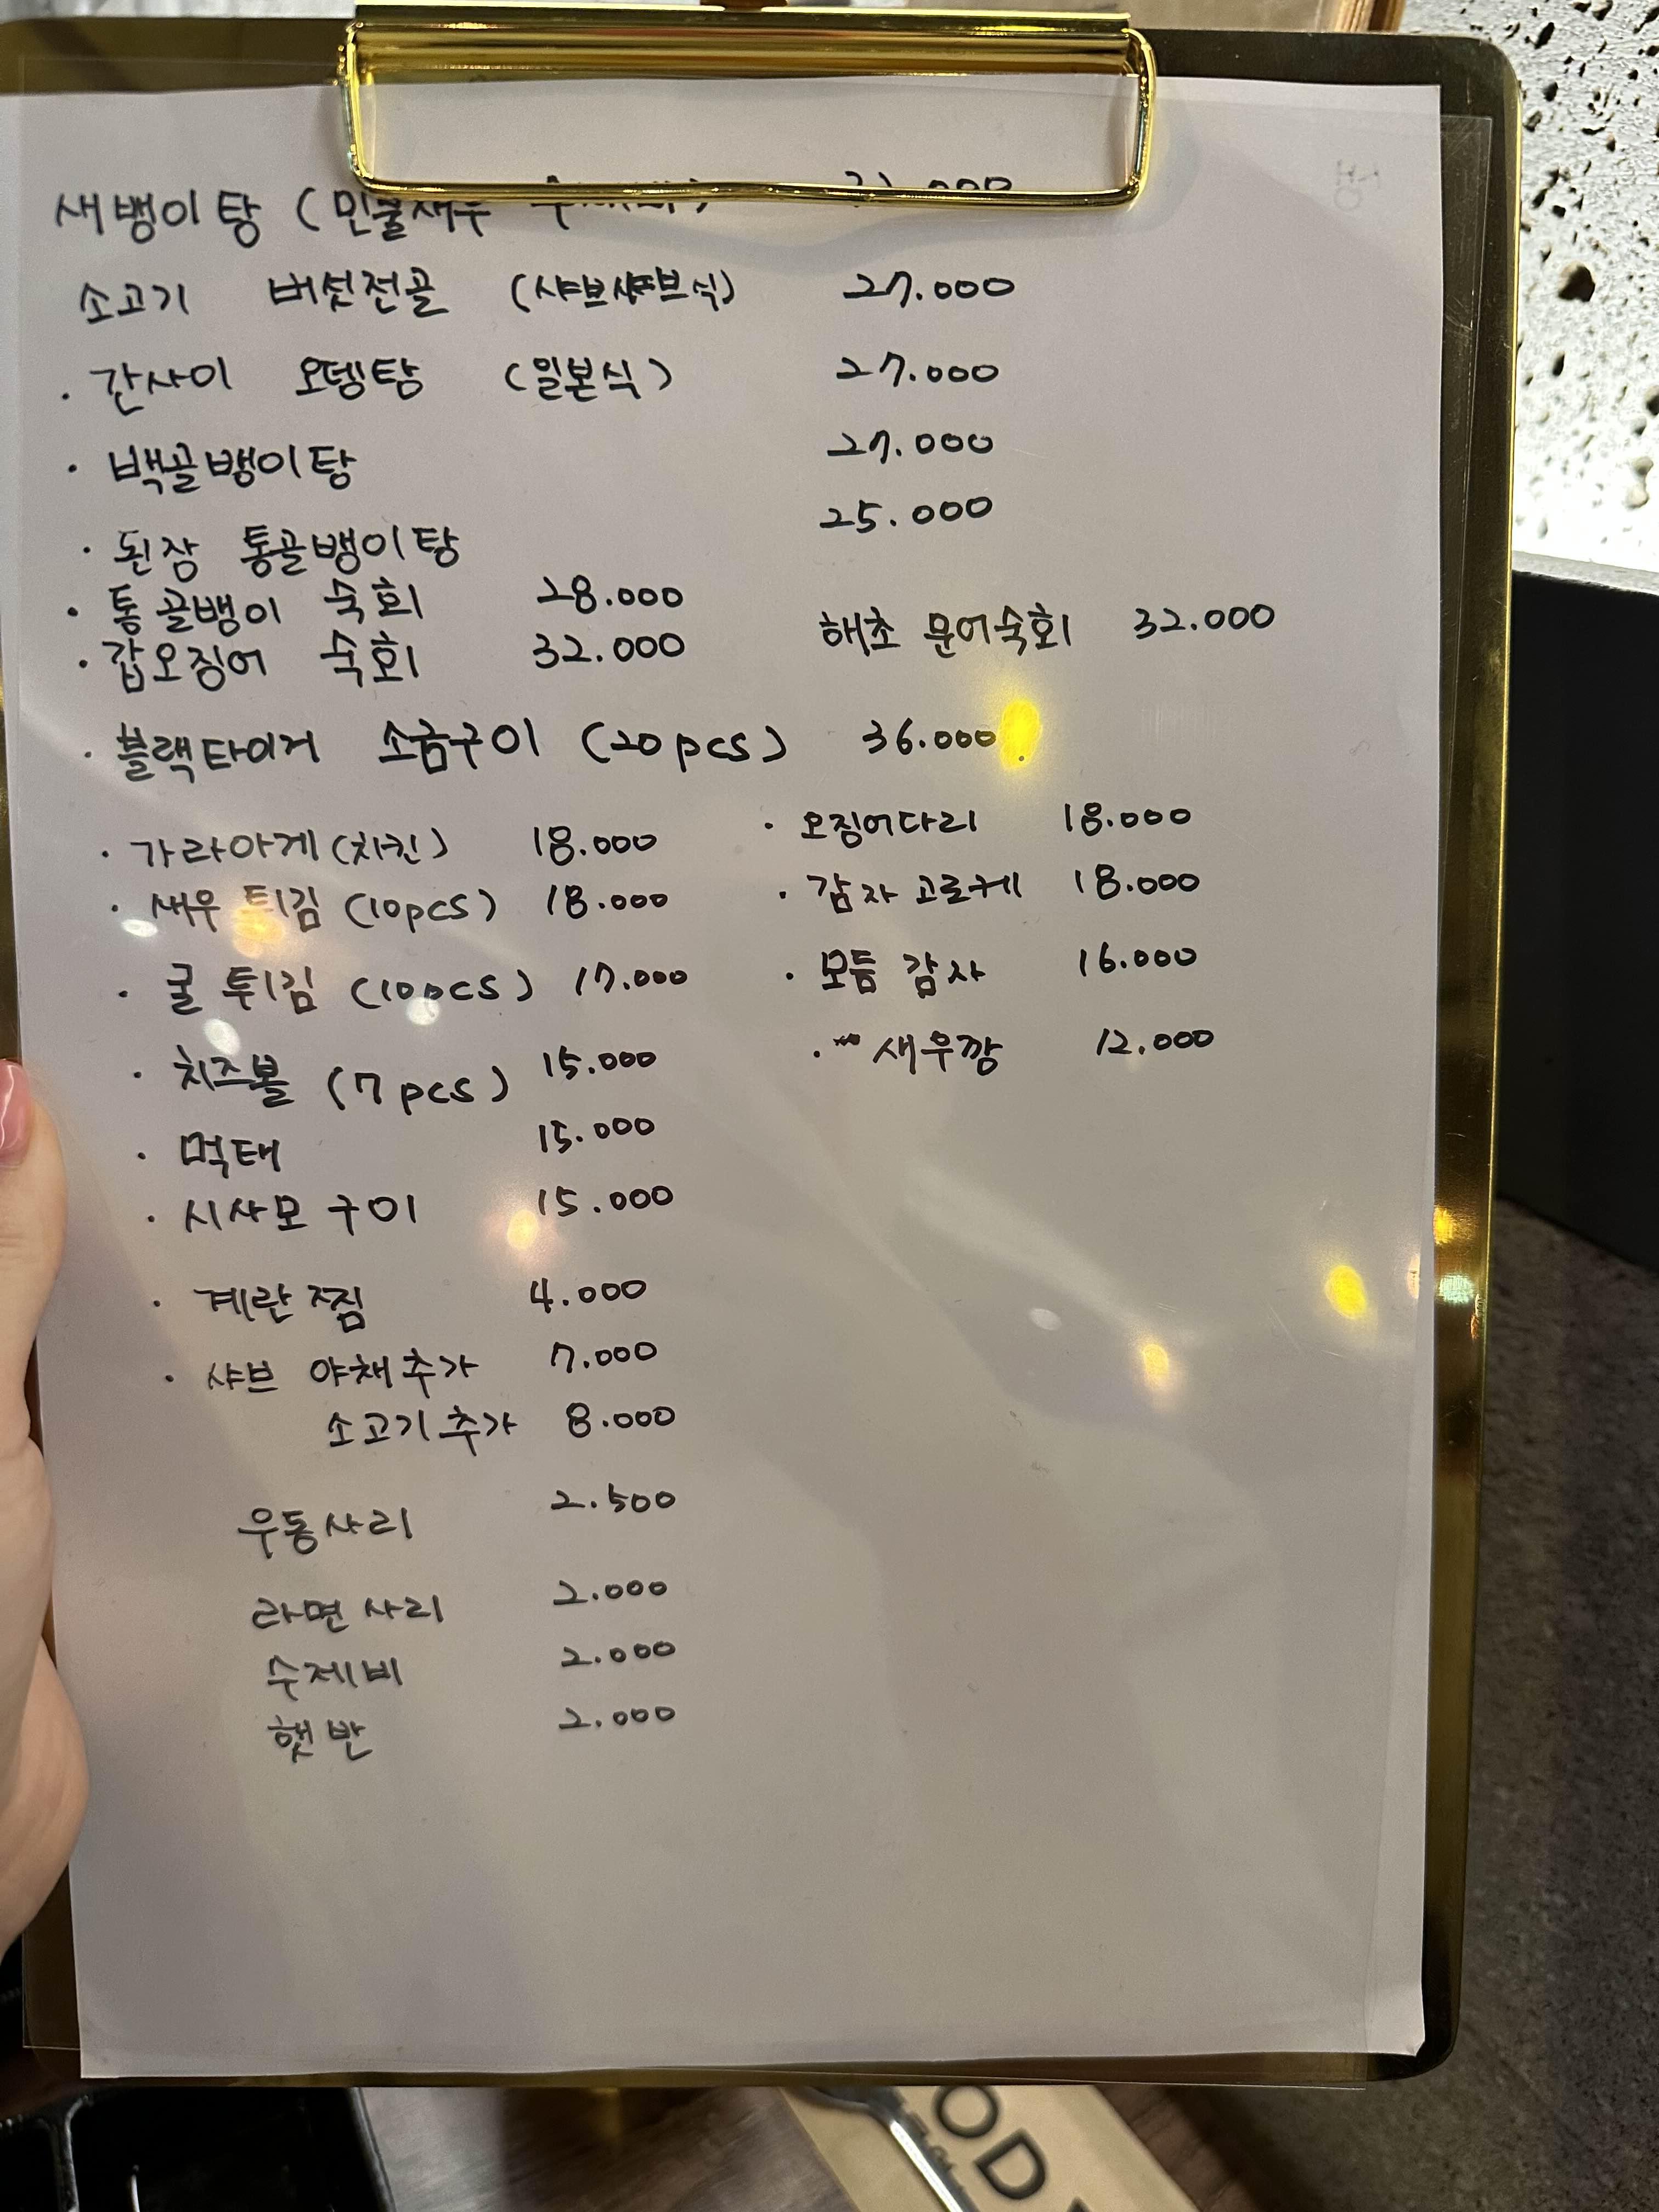 새뱅이탕 (민물새우
소고기 버섯전골 (샤브샤브식) 27.000
· 간사이 오뎅탕 (일본식) 27.000
· 백골뱅이탕 27.000
· 된장 통골뱅이탕 25.000
· 통골뱅이 숙회 28.000
· 갑오징어 숙회 32.000 해초 문어숙회 32.000
· 블랙타이거 소금구이 (20pcs) 36.000
· 가라아게(치킨) 18.000 · 오징어다리 18.000
· 새우 튀김 (10pcs) 18.000 · 감자 고로케 18.000
· 굴 튀김 (10pcs) 17.000 · 모듬 감자 16.000
· 치즈볼 (7pcs) 15.000 · 새우깡 12.000
· 먹태 15.000
· 시사모 구이 15.000
· 계란찜 4.000
· 샤브 야채추가 7.000
소고기추가 8.000
우동사리 2.500
라면사리 2.000
수제비 2.000
햇반 2.000